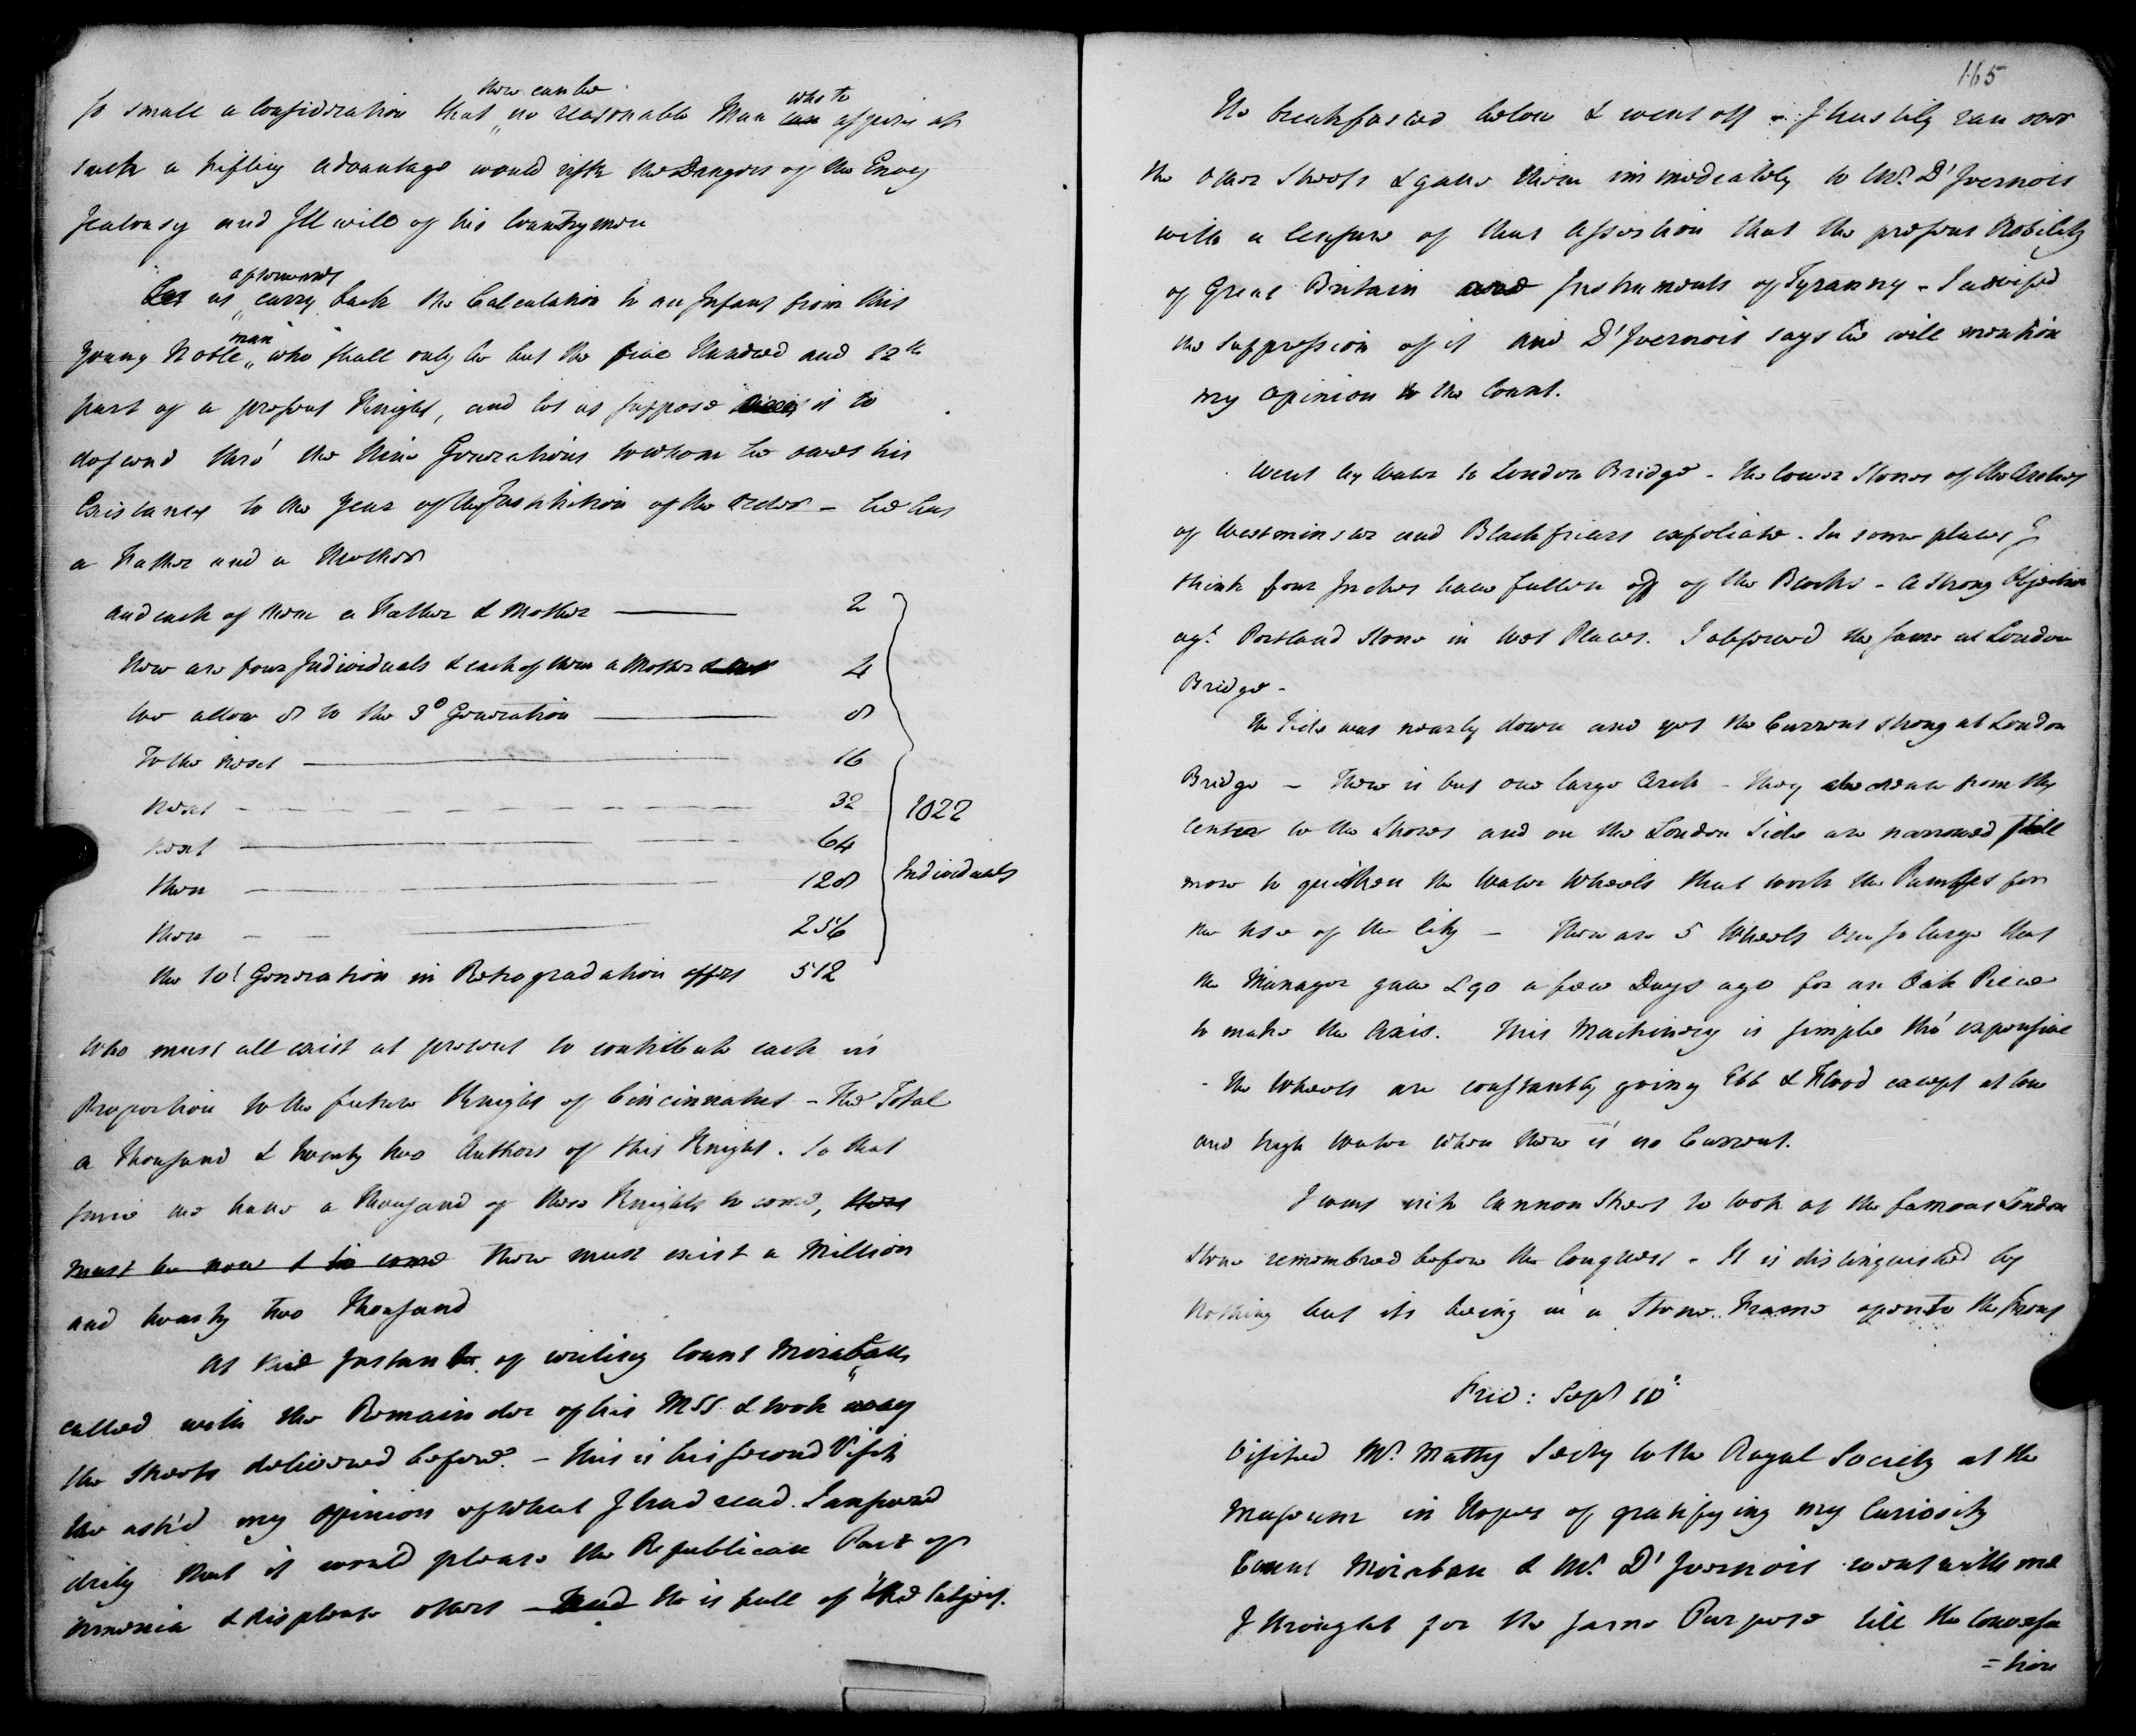 so small a consideration that there can be no reasonable Man can who to aspire at
such a trifling advantage would risk the Dangers of the Envy
Jealousy and Ill will of his Countrymen
Let us afterwards carry back the Calculation to an Infant from this
young Noble man who shall only be but the five Hundred and 12th
part of a present Knight, and let us suppose is to
descend thro' the Nine Generations to whom he owes his
Existance to the Year of the Institution of the order – he has
a Father and a Mother
and each of them a Father & Mother 2
Here are four Individuals & each of them a Mother & 4
we allow 8 to the 3d Generation 8
To the next 16
next 32
next 64
then 128
then 256
the 10t Generation in Retrogradation offers 512
1022
Individuals
who must all exist at present to contribute each in
Proportion to the future Knight of Cincinnatus – The Total
a Thousand & twenty two Authors of this Knight. So that
since we have a thousand of these Knights to come, there
must be now & to come there must exist a Million
and twenty two Thousand
At the Instant of writing Count Mirabau
called with the Remainder of his MSS & took away
the Sheets delivered before. – This is his second Visit
He ask'd my opinion of what I had read. I answered
drily that it would please the Republican Part of
America & displease others – and He is full of the subject.
165
He breakfasted below & went off – I hastily ran over
the other Sheets & gave them immediately to Mr. D'Ivernois
with a Censure of that Assertion that the present Nobility
of Great Britain are Instruments of Tyranny – I advised
the suppression of it and D'Ivernois says he will mention
my opinion to the Count.
Went by Water to London Bridge – the lower Stones of the Arches
of Westminster and Blackfriars exfoliate. In some places I
think four Inches have fallen off of the Blocks – A strong Objection
agt. Portland Stone in wet Places. I observed the same at London
Bridge –
The Tide was nearly down and yet the Current strong at London
Bridge – There is but one large Arch – they decrease from the
Center to the Shores and on the London Side are narrowed still
more to quicken the Water Wheels that work the Pumps for
the use of the City – There are 5 Wheels One so large that
the Manager gave £90 a few Days ago for an Oak Piece
to make the Axis. This Machinery is simple tho' expensive
– The Wheels are constantly going Ebb & Flood except at low
and high Water when there is no Current.
I went into Cannon Street to look at the famous London
Stone remembred before the Conquest – It is distinguished by
Nothing but its being in a Stone Frame open to the Front
Frid: Sept 10
Visited Mr. Matty Secty to the Royal Society at the
Museum in Hopes of gratifying my Curiosity
Count Mirabau & Mr. D'Ivernois went with me
I thought for the same Purpose till the Conversa
=tion